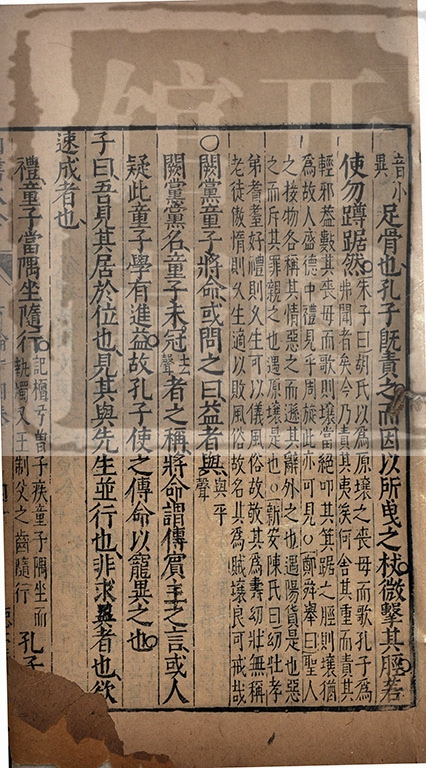 音小足骨也孔子旣責之而因以所曳之杖微擊其脛若
異使勿蹲踞然朱子曰胡氏以爲原壤之喪母而歌孔子爲
弗聞者矣今乃責其夷俟何舍其重而責其
輕邪蓋數其母死而歌則壤當絶叩其箕踞之脛則壤猶
爲故人盛德中禮見乎周旋此亦可見○鄭舜舉曰聖人
之接物各稱其情惡之而遜其辭外之也遇陽貨是也惡
之而斥其罪親之也遇原壤是也○新安陳氏曰幼壯孝
弟耆耋好禮則久生可以儀風俗故敬其爲壽幼壯無稱
老徒傲惰則久生適以敗風俗故名其爲賊壤良可戒哉
○闕黨童子將命或問之曰益者與與平聲
闕黨黨名童子未冠去聲者之稱將命謂傳賓主之言或人
疑此童子學有進益故孔子使之傳命以寵異之也
子曰吾見其居於位也見其與先生並行也非求益者也欲
速成者也
禮童子當隅坐隨行記檀弓曾子疾童子隅坐而執燭又王制父之齒隨行孔子